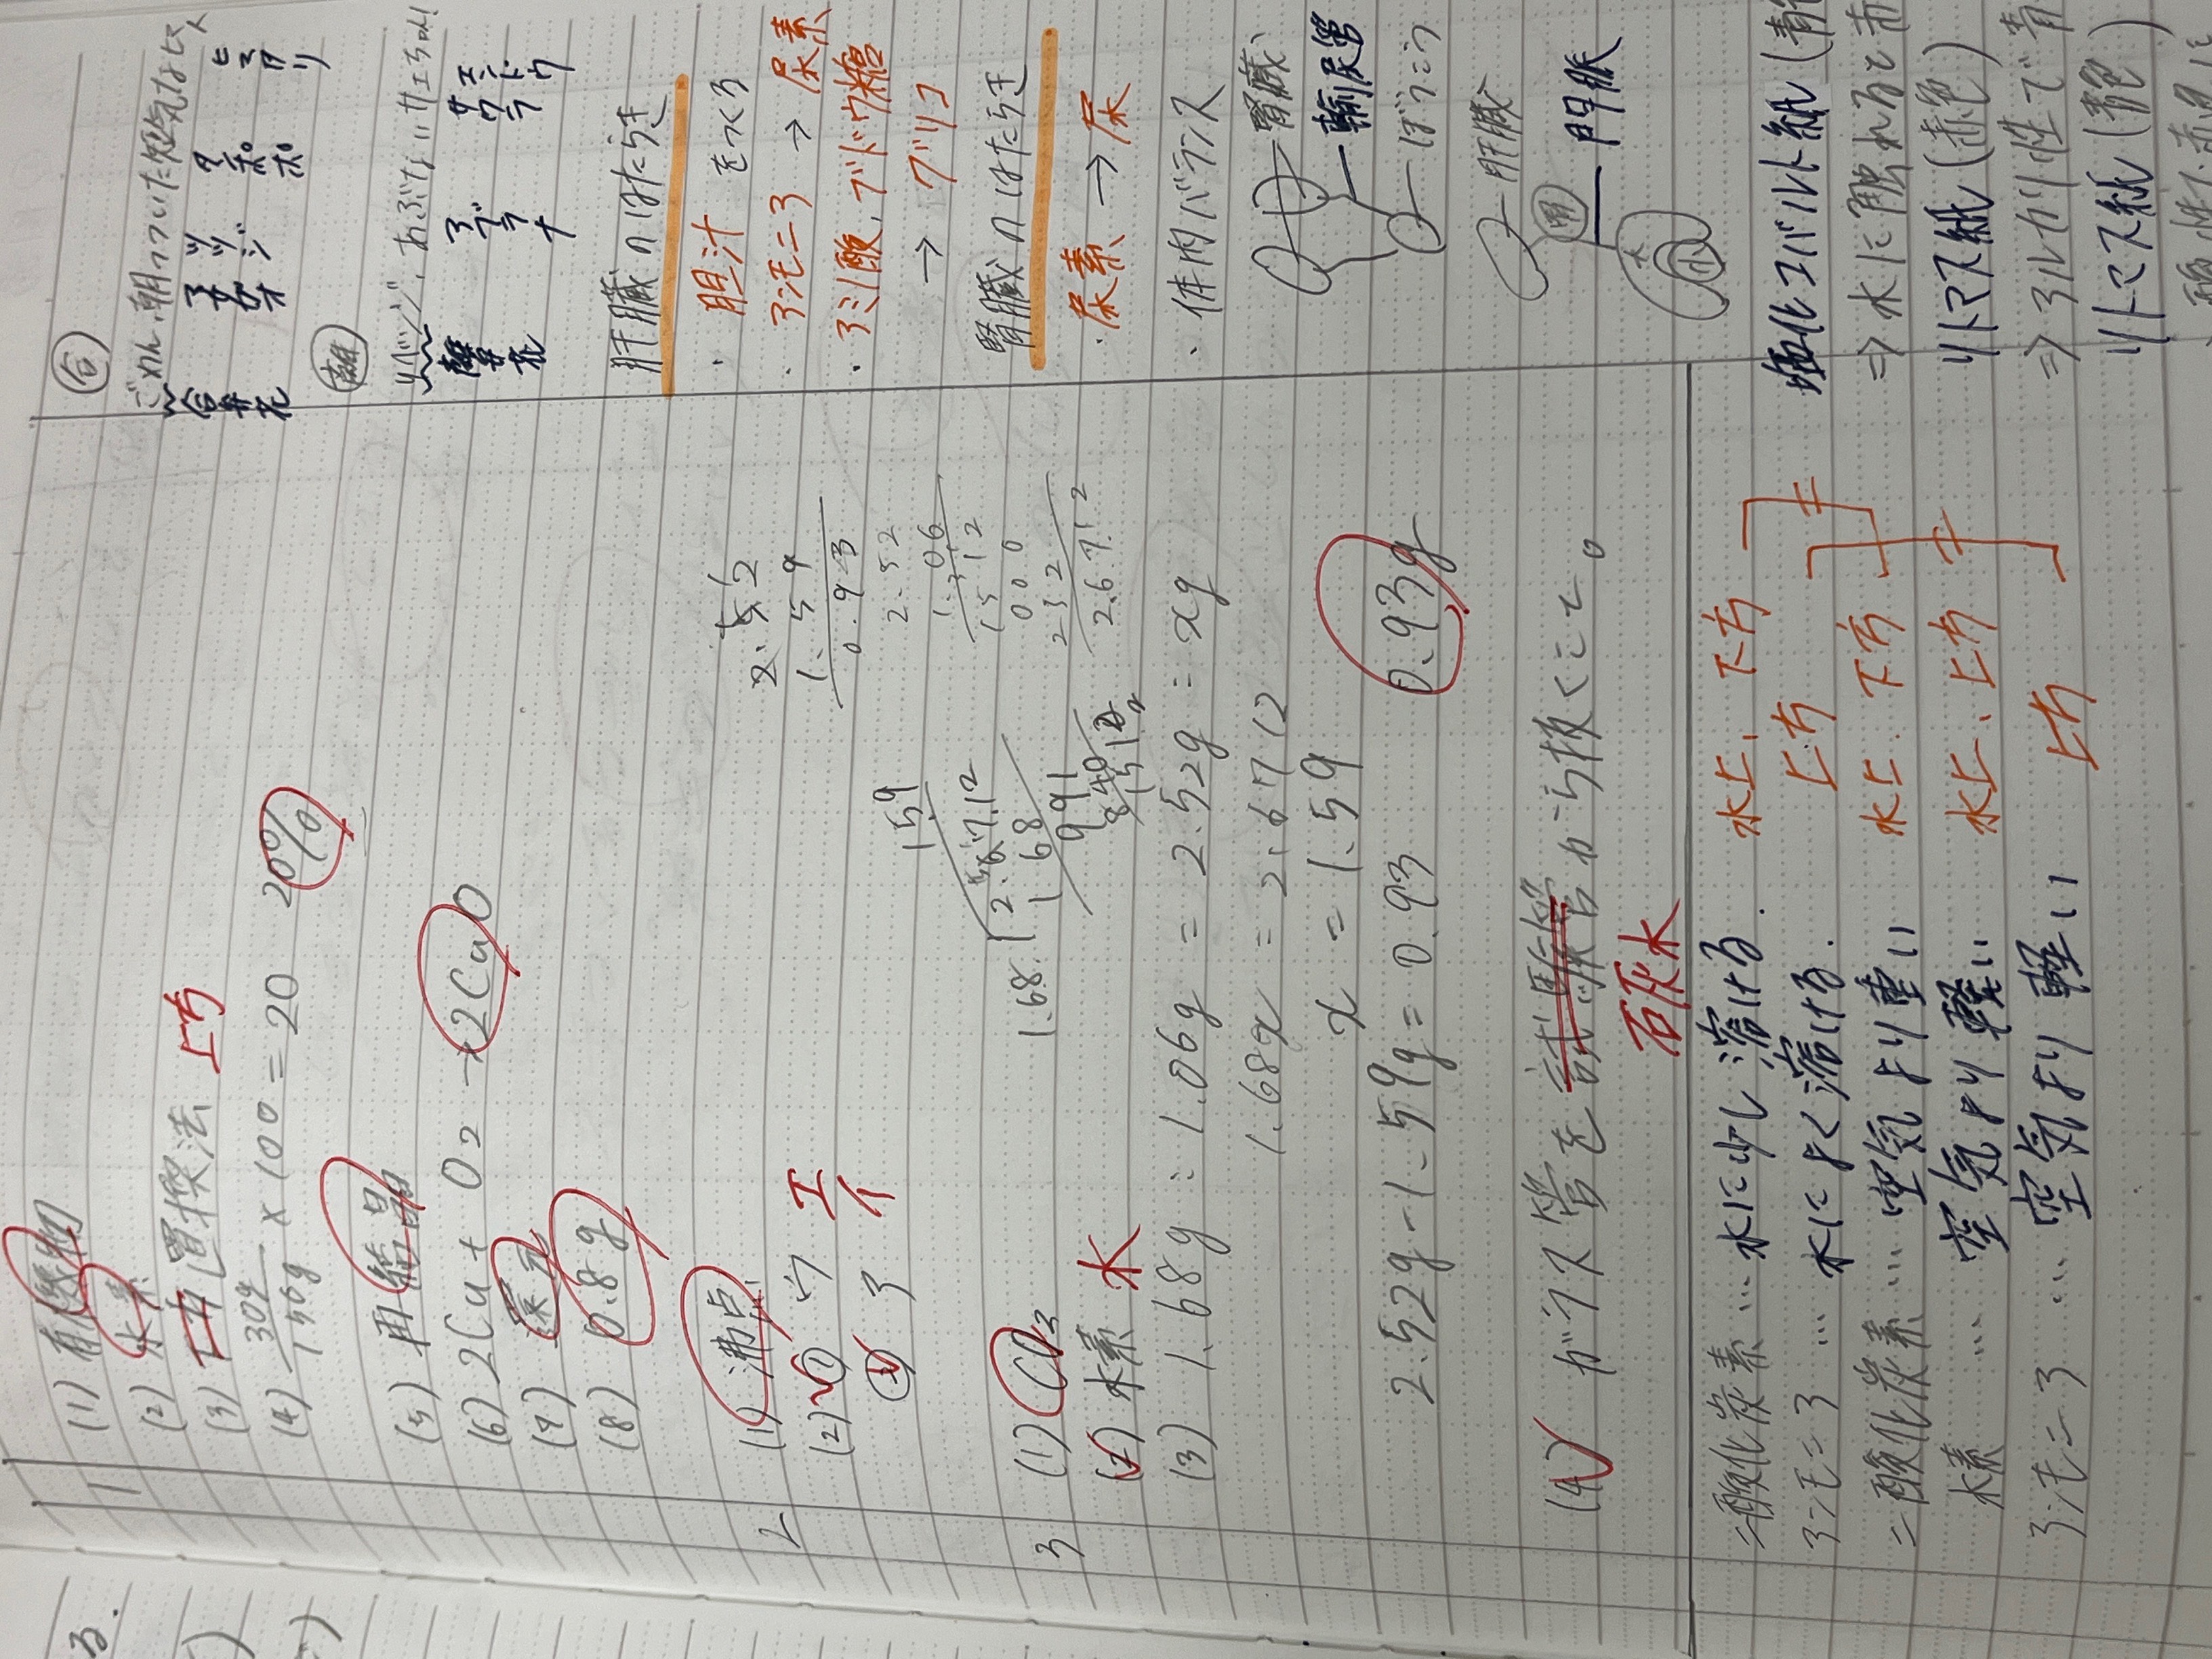 1
(1) 有機物
(2) 水素
(3) 下方置換法 上方
(4) 30g/150g × 100 = 20 20%
(5) 再結晶
(6) 2Cu + O₂ → 2CuO
(7) 還元
(8) 0.8g
2
(1) 沸点
(2) ① ウ エ
② ア イ
3
(1) CO₂
(2) 水素 水
(3) 1.68g : 1.06g = 2.52g : xg
1.68x = 2.6712
x = 1.59
2.52g - 1.59g = 0.93 0.93g
(4) ガラス管を試験管から抜くこと。
石灰水
2.52
1.59
0.93
2.52
1.06
1512
000
252
2.6712
159
1.68 2.6712
168
991
840
1512
二酸化炭素 … 水に少し溶ける. 水上、下方
アンモニア … 水によく溶ける. 上方
二酸化炭素 … 空気より重い 水上、下方
水素 … 空気より軽い 水上、上方
アンモニア … 空気より軽い 上方
合
ごめん、朝つついた
合弁花
アサガオ
ツツジ
タンポポ
ヒマワリ
離
離弁花
アブラナ
サクラ
エンドウ
肝臓のはたらき
・胆汁をつくる
・アンモニア → 尿素
・アミノ酸、ブドウ糖
→ グリコ
腎臓のはたらき
・尿素 → 尿
・体内バランス
腎臓
輸尿管
ぼうこう
肝臓
門脈
塩化コバルト紙 (青
⇒ 水に触れると赤
リトマス紙 (赤色)
⇒ アルカリ性で青
リトマス紙 (青色)